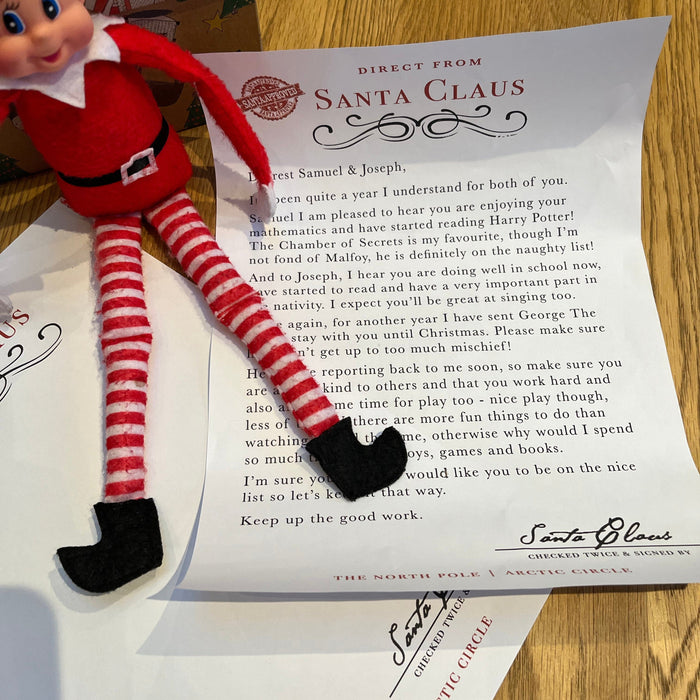 DIRECT FROM
SANTA CLAUS
SANTA APPROVED
Samuel & Joseph,
been quite a year I understand for both of you.
I am pleased to hear you are enjoying your
mathematics and have started reading Harry Potter!
The Chamber of Secrets is my favourite, though I'm
not fond of Malfoy, he is definitely on the naughty list!
And to Joseph, I hear you are doing well in school now,
started to read and have a very important part in
nativity. I expect you'll be great at singing too.
again, for another year I have sent George The
stay with you until Christmas. Please make sure
get up to too much mischief!
reporting back to me soon, so make sure you
are kind to others and that you work hard and
also time for play too - nice play though,
less of there are more fun things to do than
watching otherwise why would I spend
so much toys, games and books.
I'm sure would like you to be on the nice
list so let's that way.
Keep up the good work.
Santa Claus
CHECKED TWICE & SIGNED BY
THE NORTH POLE | ARCTIC CIRCLE
US
Santa
CHECKED TWICE &
TIC CIRCLE